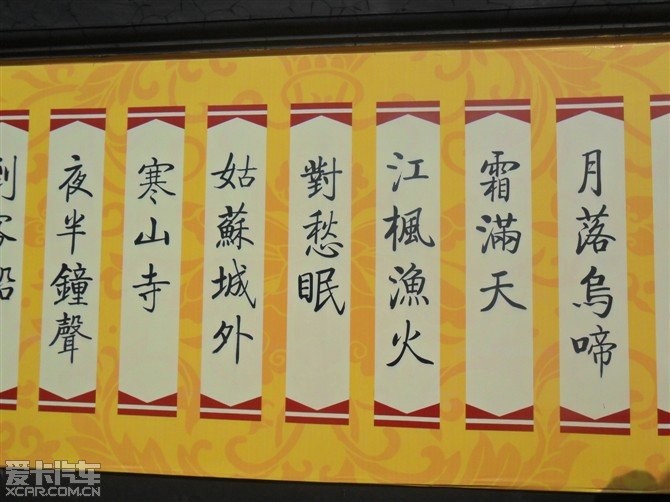 月落烏啼
霜滿天
江楓漁火
對愁眠
姑蘇城外
寒山寺
夜半鐘聲
到客船
爱卡汽车
XCAR.COM.CN